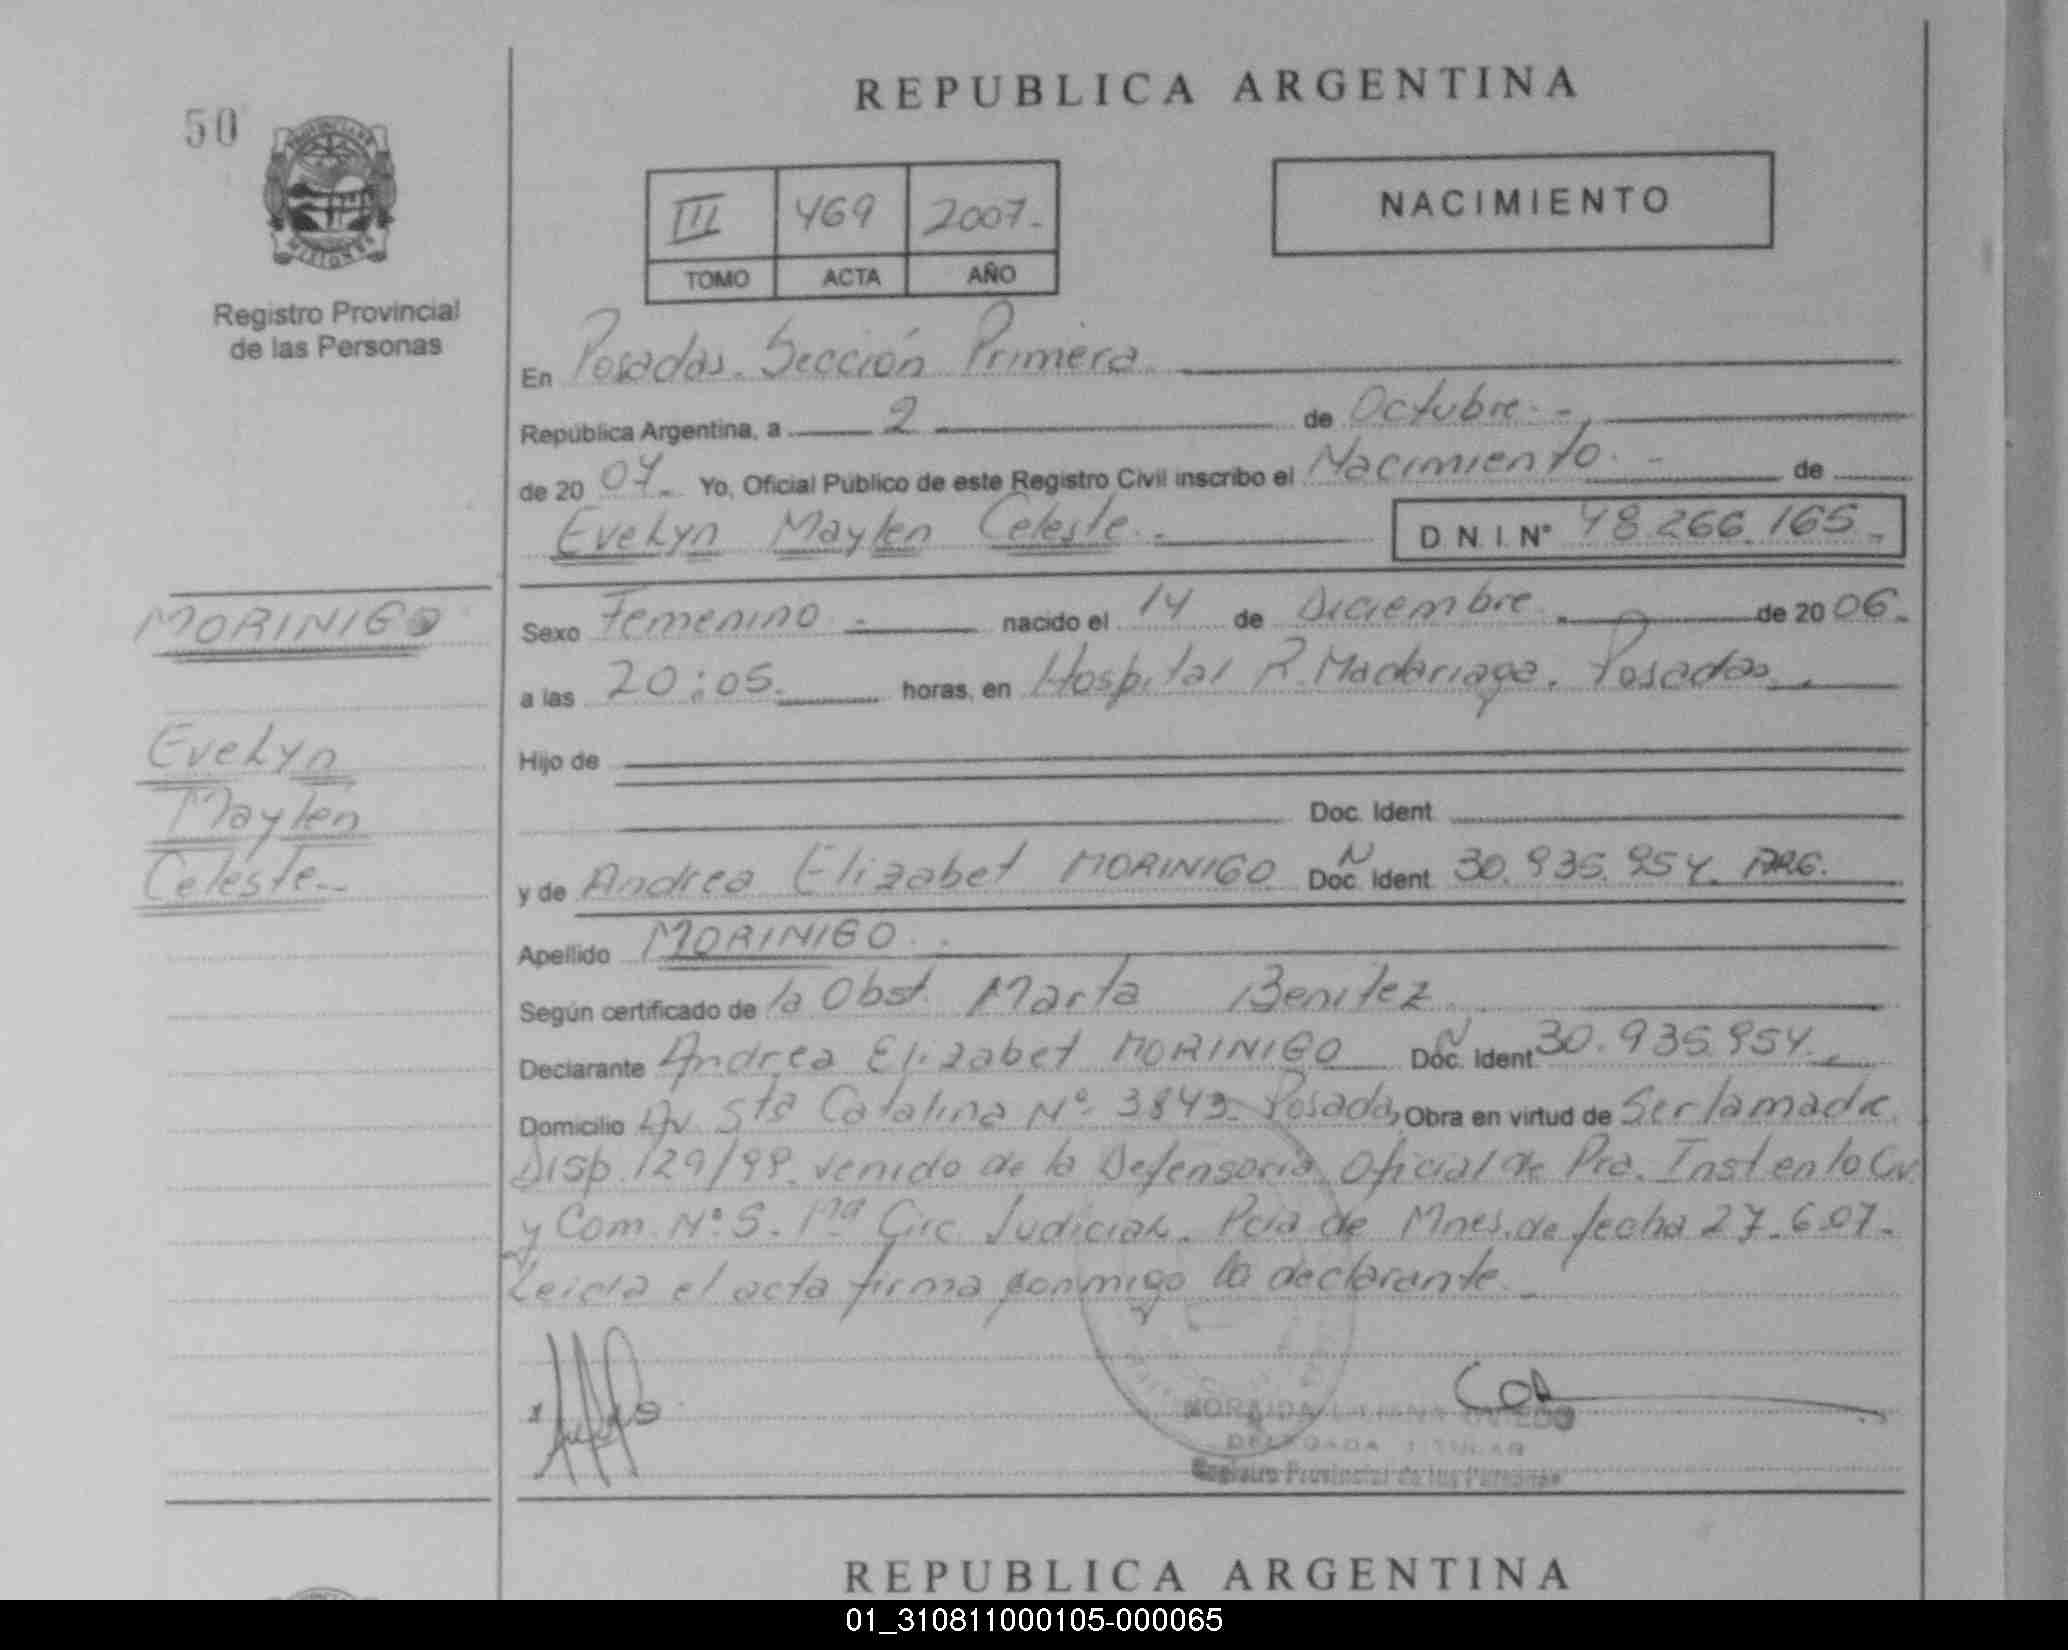 REPUBLICA ARGENTINA
50
III 469 2007.-
TOMO ACTA AÑO
NACIMIENTO
Registro Provincial
de las Personas
En Posadas. Sección Primera
República Argentina, a 2 de Octubre.-
de 20 07.- Yo, Oficial Público de este Registro Civil inscribo el Nacimiento.- de
Evelyn Maylen Celeste.- D.N.I. N° 48.266.165.-
MORINIGO
Evelyn
Maylen
Celeste.-
Sexo Femenino.- nacido el 14 de Diciembre.- de 20 06.-
a las 20:05.- horas, en Hospital R. Madariaga. Posadas.
Hijo de
Doc. Ident.
y de Andrea Elizabet MORINIGO Doc. Ident. 30.935.954. ARG.
Apellido MORINIGO.
Según certificado de la Obst. Marta Benitez
Declarante Andrea Elizabet MORINIGO Doc. Ident. 30.935.954.
Domicilio Av. Sta Catalina N° 3843. Posadas Obra en virtud de Ser la madre
Disp. 129/99. venido de la Defensoria Oficial de Pra. Inst en lo Civ.
y Com. N°.5. 1ra Circ Judicial. Pcia de Mnes. de fecha 27.6.07.-
Leida el acta firma conmigo la declarante.-
DELEGADA TITULAR
Registro Provincial de las Personas
REPUBLICA ARGENTINA
01_310811000105-000065